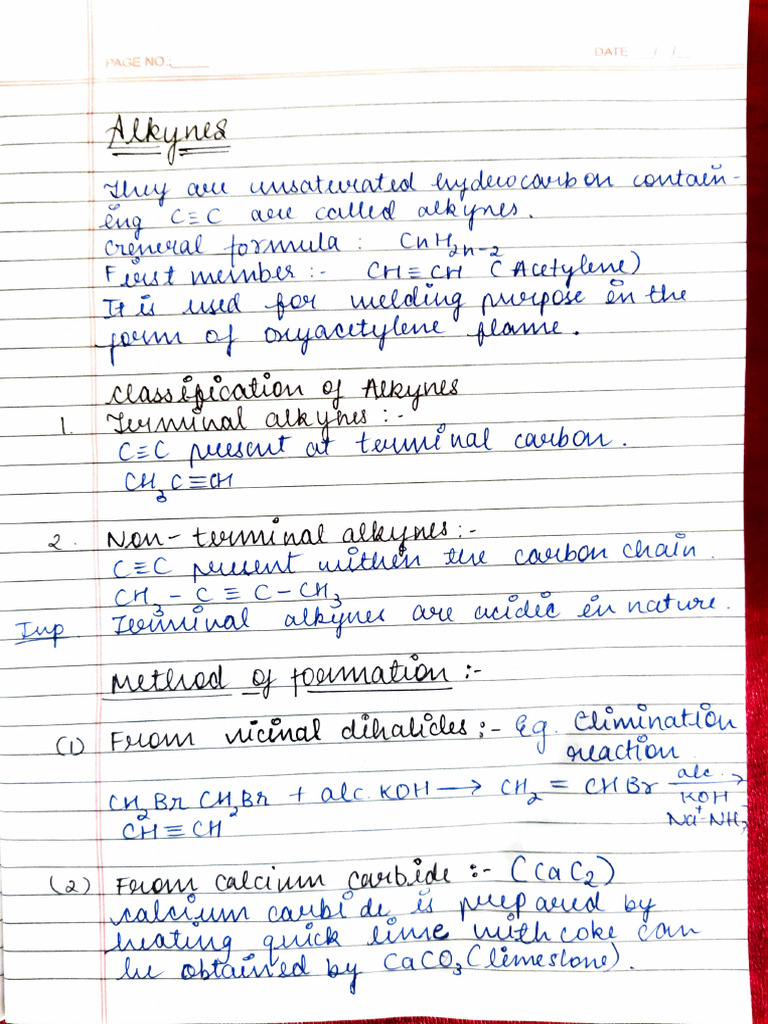 PAGE NO.:
DATE / /
Alkynes
They are unsaturated hydrocarbon contain-
ing C≡C are called alkynes.
General formula : CnH2n-2
First member :- CH≡CH (Acetylene)
It is used for welding purpose in the
form of oxyacetylene flame.
Classification of Alkynes
1. Terminal alkynes :-
C≡C present at terminal carbon.
CH3C≡CH
2. Non-terminal alkynes :-
C≡C present within the carbon chain.
CH3 - C ≡ C - CH3
Imp. Terminal alkynes are acidic in nature.
Method of formation :-
(1) From vicinal dihalides :- Eg. Elimination
reaction
CH2Br CH2Br + alc. KOH → CH2 = CHBr alc. KOH Na+NH2 →
CH≡CH
(2) From calcium carbide :- (CaC2)
calcium carbide is prepared by
heating quick lime with coke can
be obtained by CaCO3 (limestone).